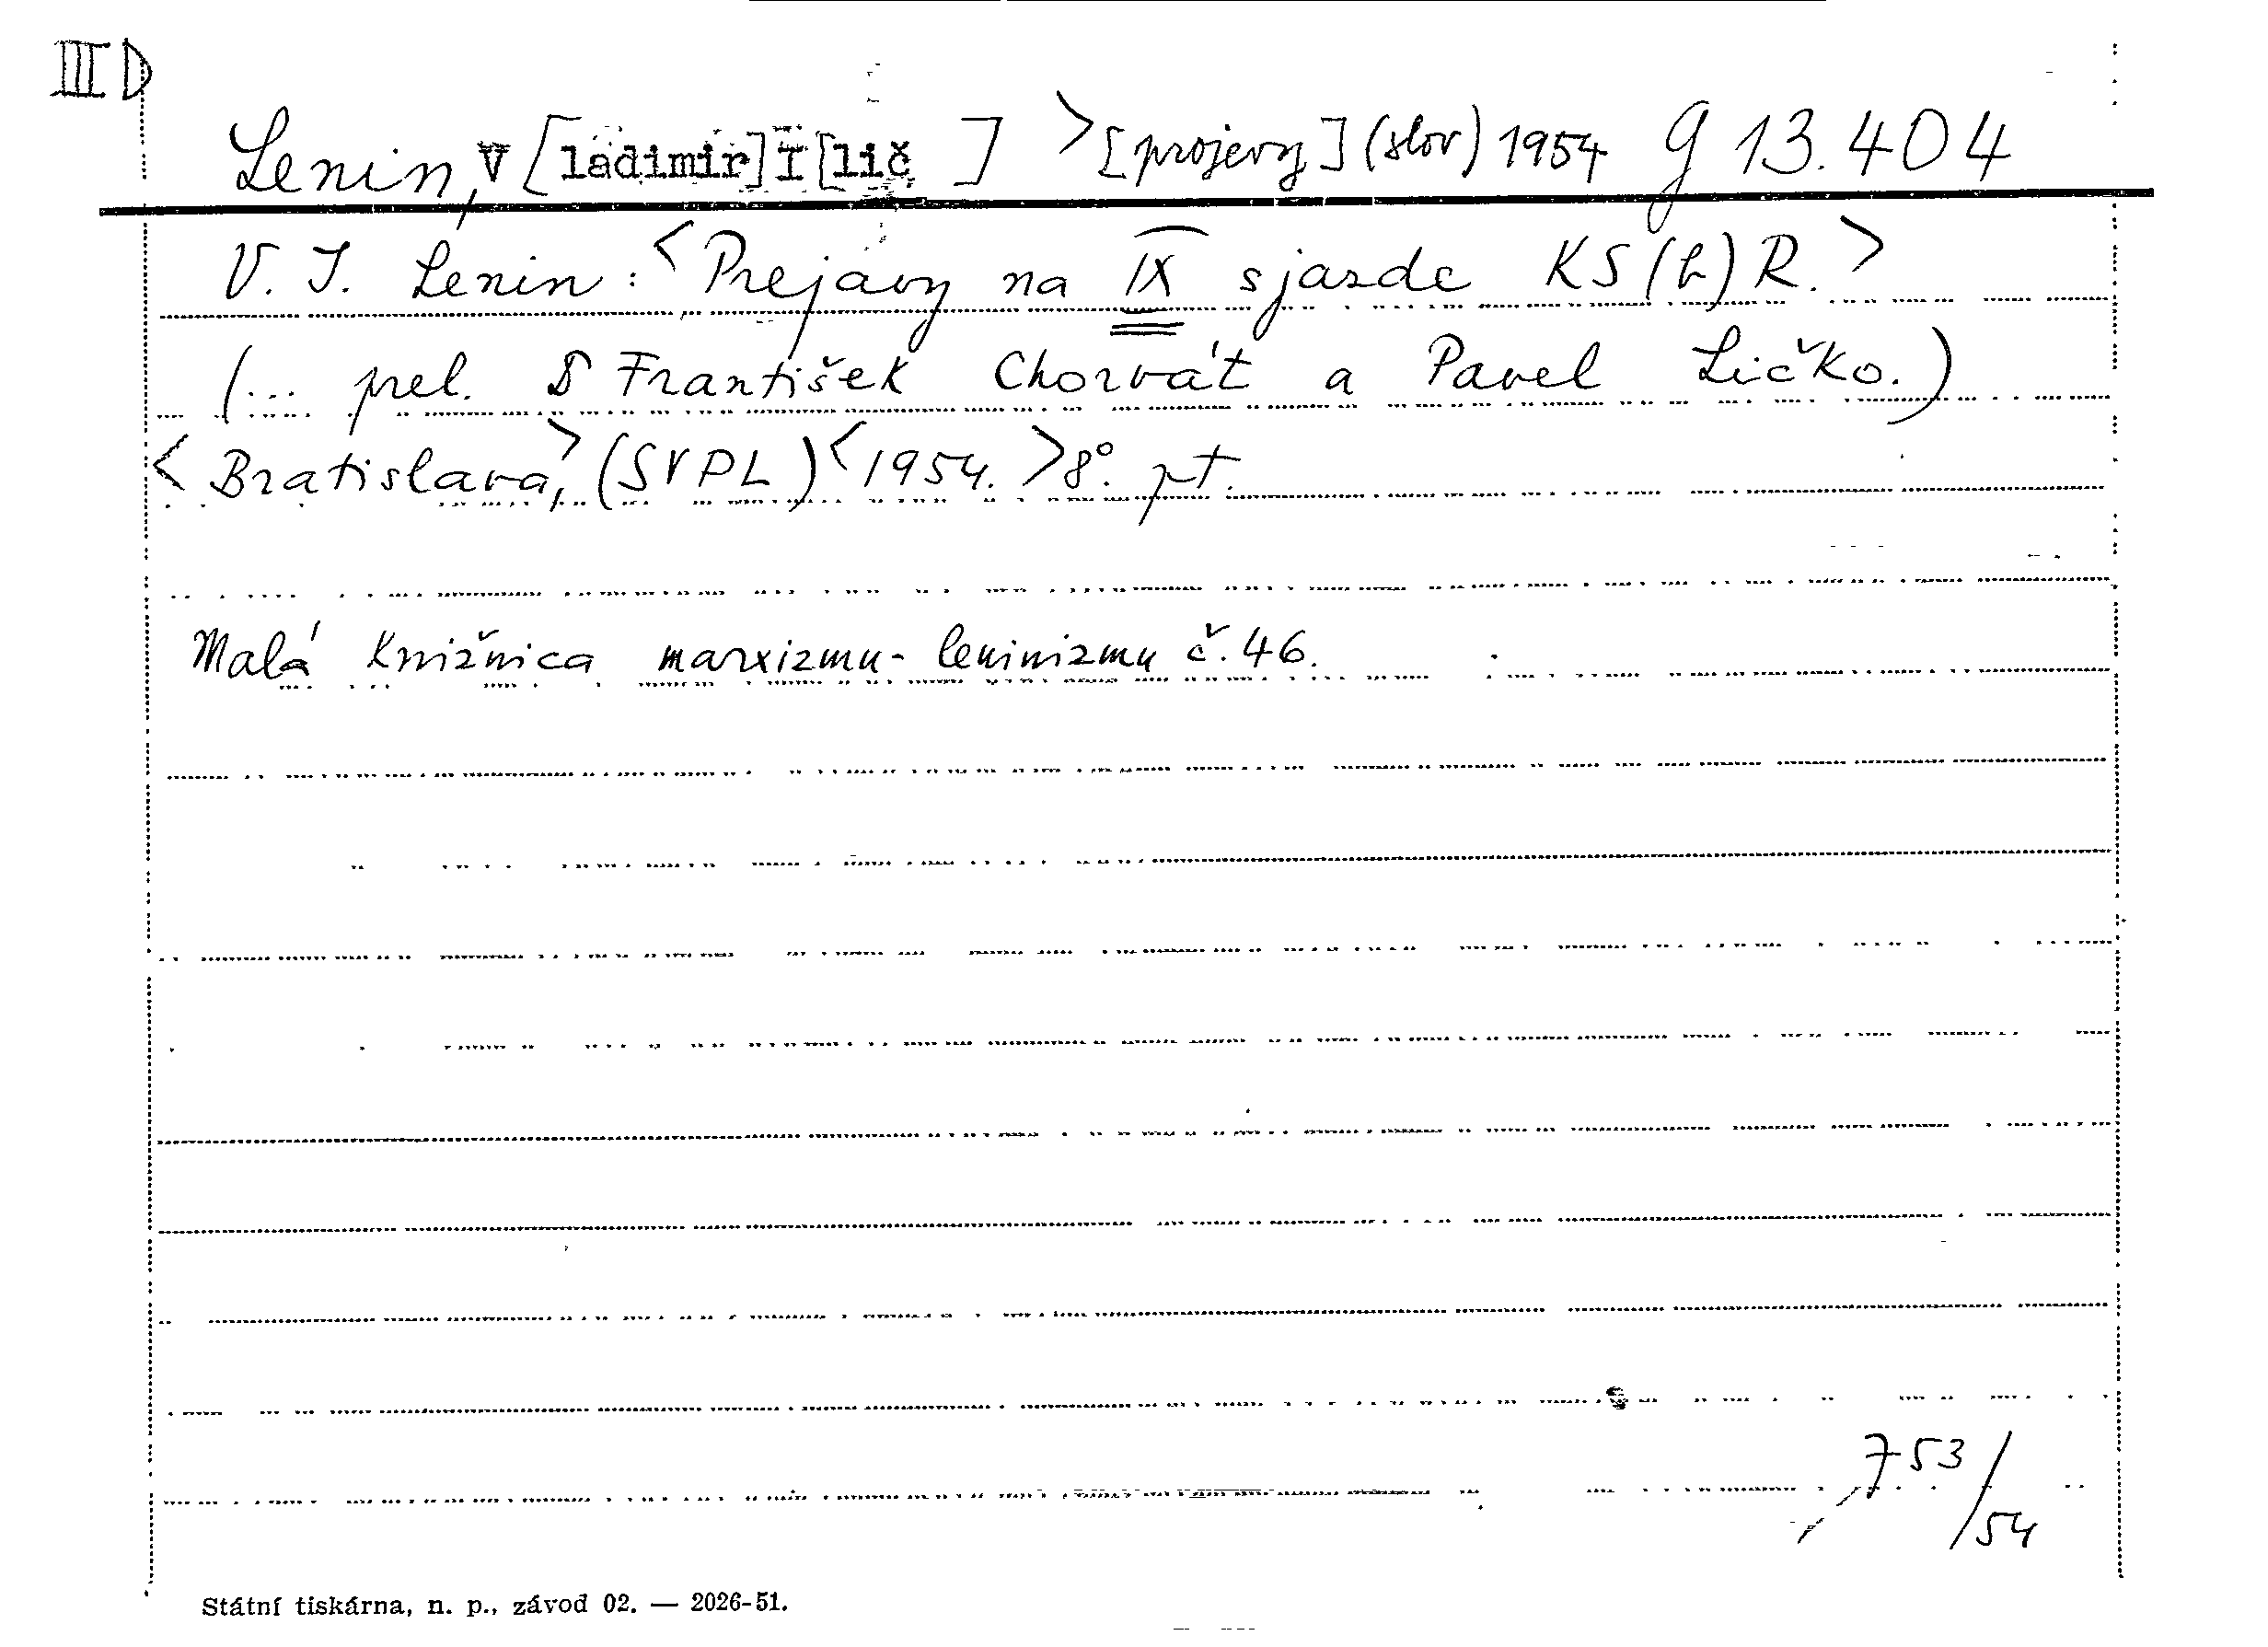 III D
Lenin, V[ladimir] I[lič ] >[projevy] (slov) 1954 g 13.404
V. I. Lenin: <Prejavy na IX sjazde KS(b)R.>
(... prel. František Chorvát a Pavel Ličko.)
<Bratislava,> (SVPL) <1954.> 8°. pt.
Malá knižnica marxizmu-leninizmu č. 46.
753/54
Státní tiskárna, n. p., závod 02. — 2026-51.